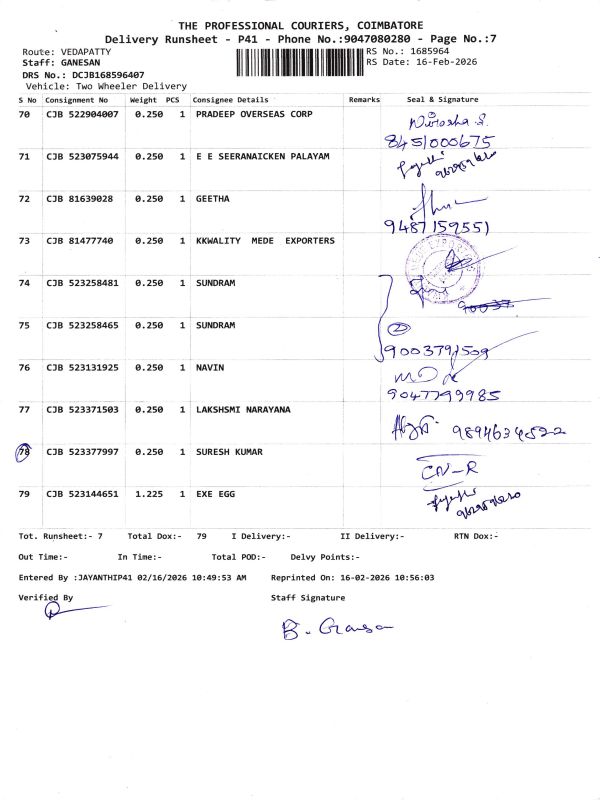 THE PROFESSIONAL COURIERS, COIMBATORE
Delivery Runsheet - P41 - Phone No.:9047080280 - Page No.:7
Route: VEDAPATTY
RS No.: 1685964
Staff: GANESAN
RS Date: 16-Feb-2026
DRS No.: DCJB168596407
Vehicle: Two Wheeler Delivery
S No Consignment No Weight PCS Consignee Details Remarks Seal & Signature
70 CJB 522904007 0.250 1 PRADEEP OVERSEAS CORP
8451000675
71 CJB 523075944 0.250 1 E E SEERANAICKEN PALAYAM
72 CJB 81639028 0.250 1 GEETHA
9487159551
73 CJB 81477740 0.250 1 KKWALITY MEDE EXPORTERS
74 CJB 523258481 0.250 1 SUNDRAM
90037
75 CJB 523258465 0.250 1 SUNDRAM
2
9003791509
76 CJB 523131925 0.250 1 NAVIN
9047799985
77 CJB 523371503 0.250 1 LAKSHSMI NARAYANA
9894634522
78 CJB 523377997 0.250 1 SURESH KUMAR
CN-R
79 CJB 523144651 1.225 1 EXE EGG
Tot. Runsheet:- 7 Total Dox:- 79 I Delivery:- II Delivery:- RTN Dox:-
Out Time:- In Time:- Total POD:- Delvy Points:-
Entered By :JAYANTHIP41 02/16/2026 10:49:53 AM Reprinted On: 16-02-2026 10:56:03
Verified By Staff Signature
B. Ganesan